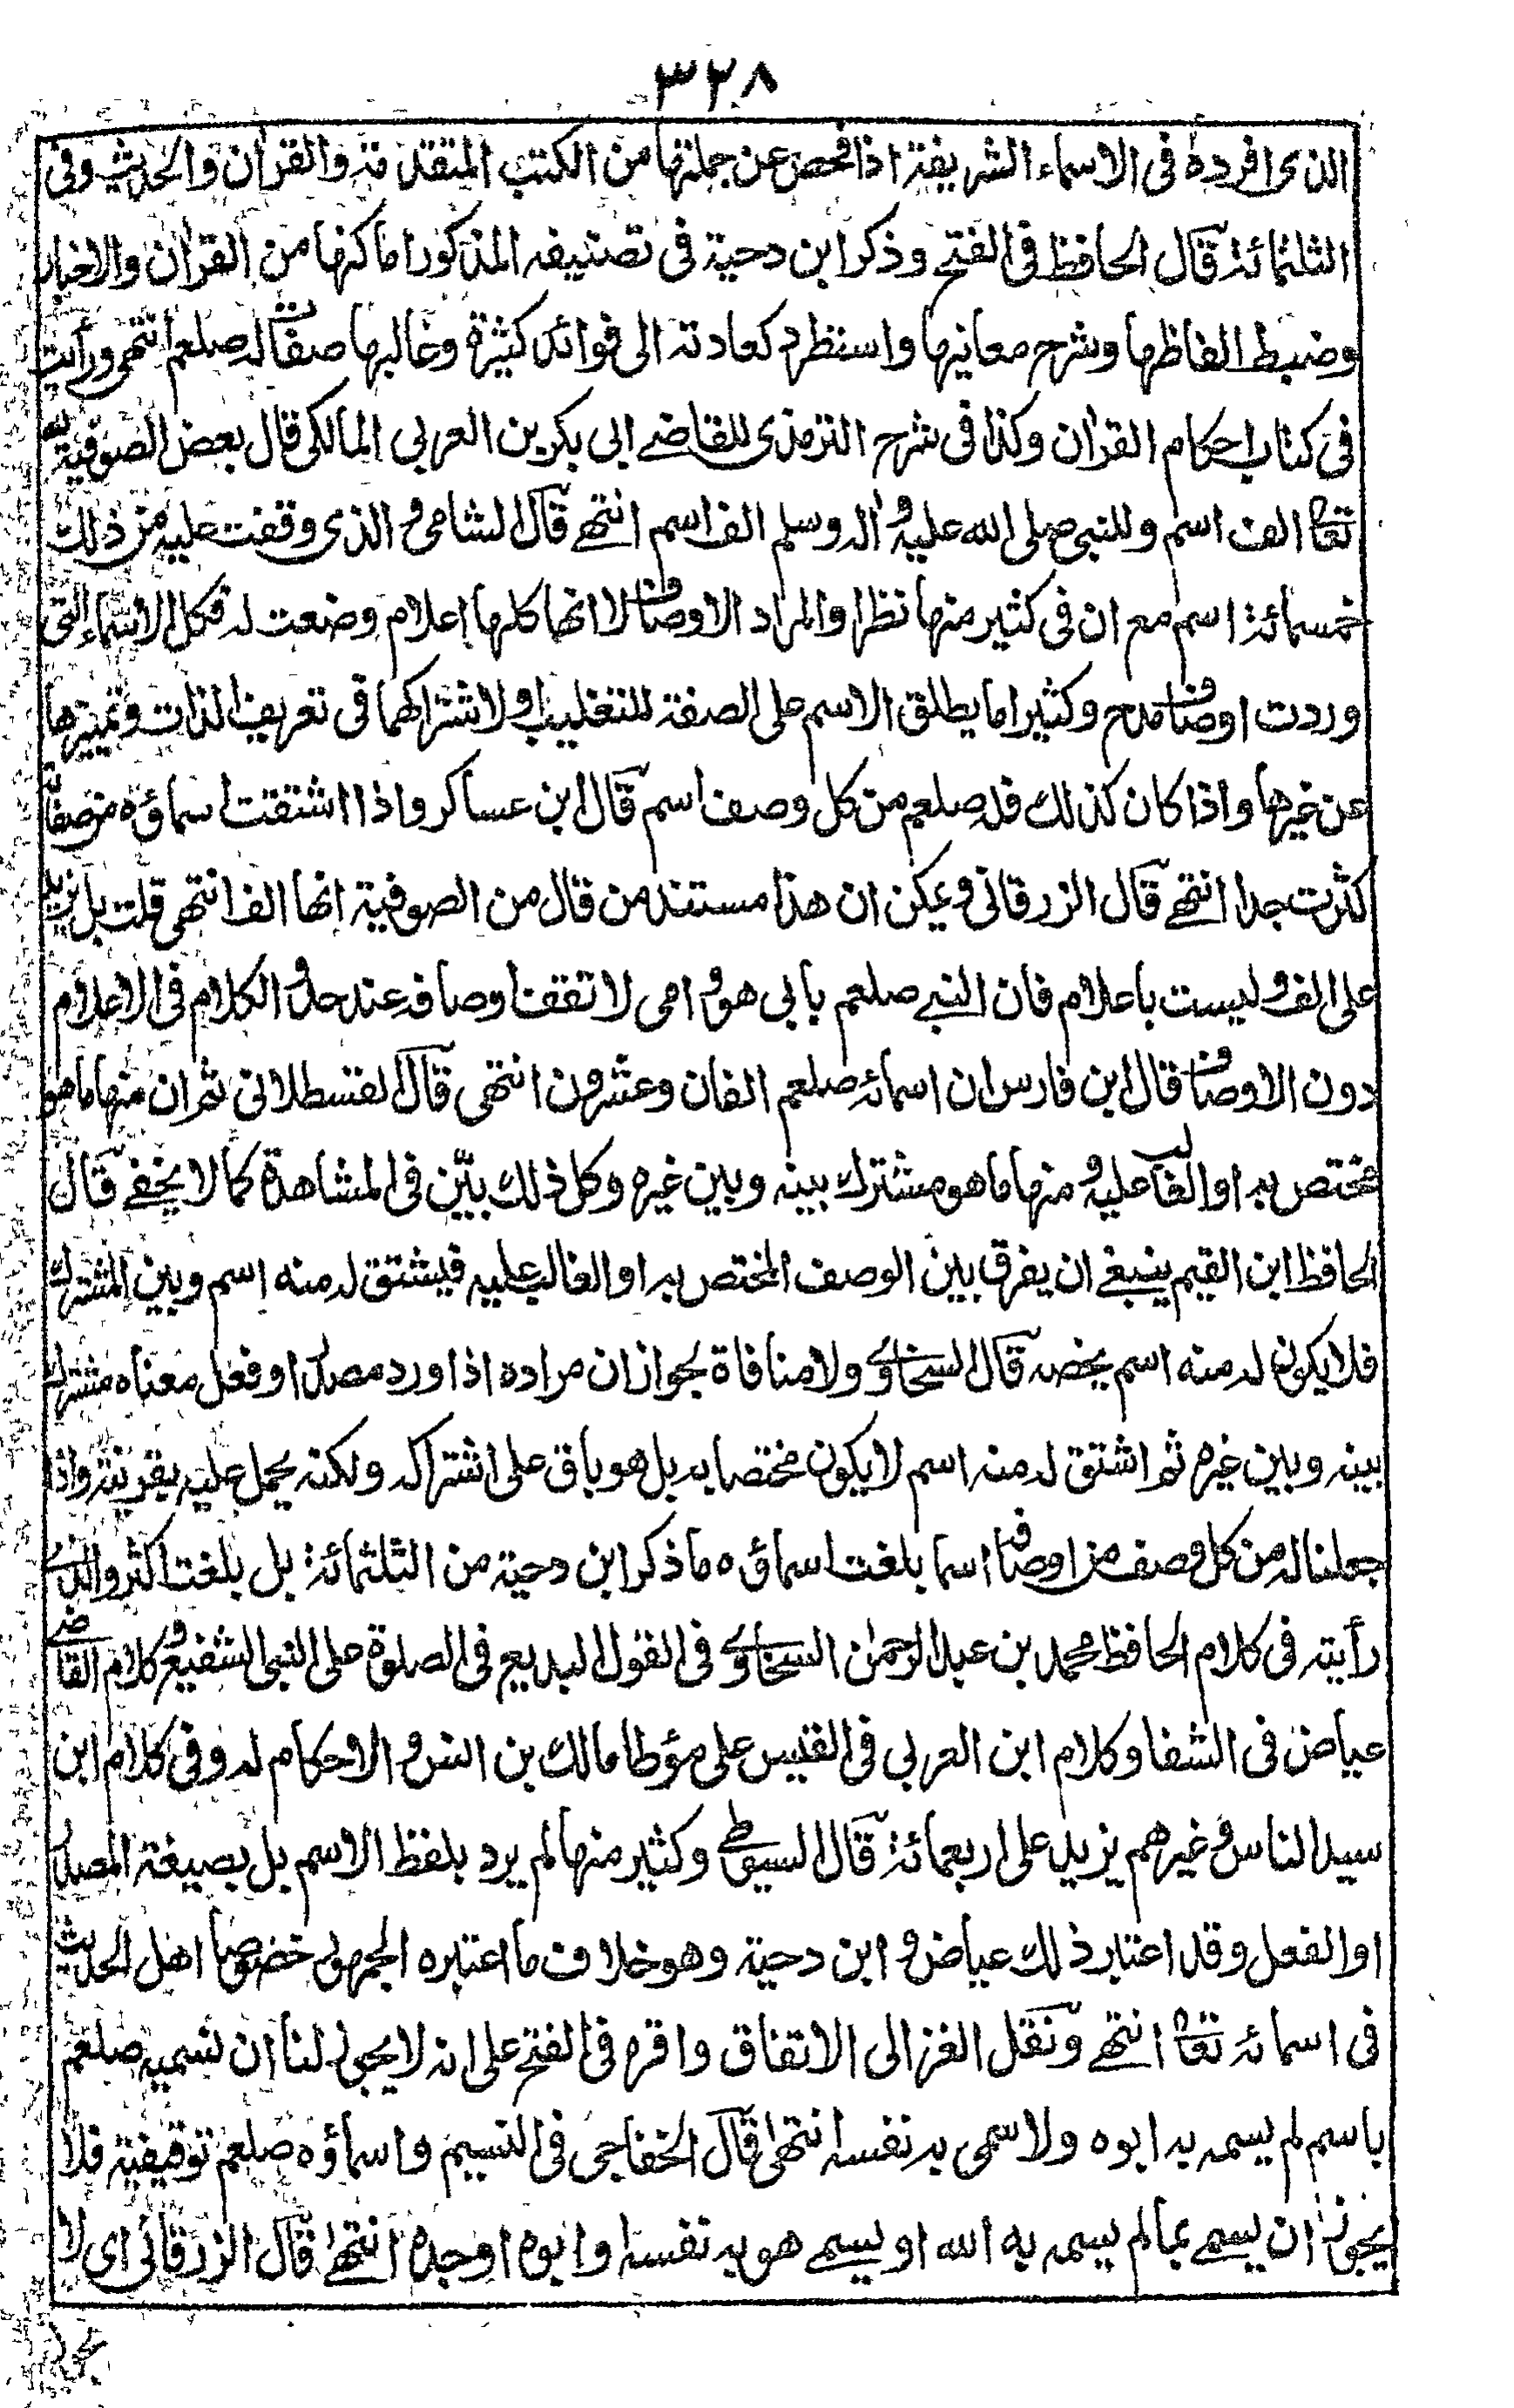 ٣٢٨
الذى افرده فى الاسماء الشريفة اذا فحص عن جملتها من الكتب المتقدمة والقرآن والحديث وفى
الثلثمائة قال الحافظ فى الفتح وذكر ابن دحية فى تصنيفه المذكور اماكنها من القرآن والاخبار
وضبط الفاظها وشرح معانيها واستطرد كعادته الى فوائد كثيرة وغالبها صفات له صلعم انتهى ورأيت
فى كتاب احكام القرآن وكذا فى شرح الترمذى للقاضے ابى بكر بن العربى المالكى قال بعض الصوفية لله
تعا الف اسم وللنبى صلى الله عليه وآله وسلم الف اسم انتهے قال الشامى والذى وقفت عليه من ذلك
خمسمائة اسم مع ان فى كثير منها نظرا والمراد الاوصاف لا انها كلها اعلام وضعت له فكل الاسماء التى
وردت اوصاف مدح وكثيرا ما يطلق الاسم على الصفة للتغليب ولاشتراكهما فى تعريف الذات وتمييزها
عن غيرها واذا كان كذلك فله صلعم من كل وصف اسم قال ابن عساكر واذا اشتقت اسماؤه من صفاته
كثرت جدا انتهے قال الزرقانى ويمكن ان هذا مستند من قال من الصوفية انها الف انتهى قلت بل تزيد
على الف وليست باعلام فان النبے صلعم بابى هو وامى لا تقف اوصافه عند حد والكلام فى الاعلام
دون الاوصاف قال ابن فارس ان اسمائه صلعم الفان وعشرون انتهى قال القسطلانى ثم ان منها ما هو
مختص به او الغالب عليه ومنها ما هو مشترك بينه وبين غيره وكل ذلك بيّن فى المشاهدة كما لا يخفے قال
الحافظ ابن القيم ينبغے ان يفرق بين الوصف المختص به او الغالب عليه فيشتق له منه اسم وبين المشترك
فلا يكون له منه اسم يخصه قال السخاوے ولا منافاة لجواز ان مراده اذا ورد مصدر او فعل معناه مشترك
بينه وبين غيره ثم اشتق له منه اسم لا يكون مختصا به بل هو باق على اشتراكه ولكنه يحمل عليه بقرينة واذا
جعلنا له من كل وصف من اوصافه اسما بلغت اسماؤه ما ذكر ابن دحية من الثلثمائة بل بلغت اكثر والذے
رأيته فى كلام الحافظ محمد بن عبد الرحمٰن السخاوے فى القول البديع فى الصلوة على النبى الشفيع وكلام القاضے
عياض فى الشفا وكلام ابن العربى فى القبس على مؤطا مالك بن انس والاحكام له وفى كلام ابن
سيد الناس وغيرهم يزيد على اربعمائة قال السيوطے وكثير منها لم يرد بلفظ الاسم بل بصيغة المصدر
او الفعل وقد اعتبر ذلك عياض وابن دحية وهو خلاف ما اعتبره الجمهور خصوصا اهل الحديث
فى اسمائه تعا انتهے ونقل الغزالى الاتفاق واقره فى الفتح على انه لا يجوز لنا ان نسميه صلعم
باسم لم يسمه به ابوه ولا سمى به نفسه انتهى قال الخفاجى فى النسيم واسماؤه صلعم توقيفية فلا
يجوز ان يسمے بما لم يسمه به الله او يسمے هو به نفسه او ابوه او جده انتهے قال الزرقانى اى لا
يجوز